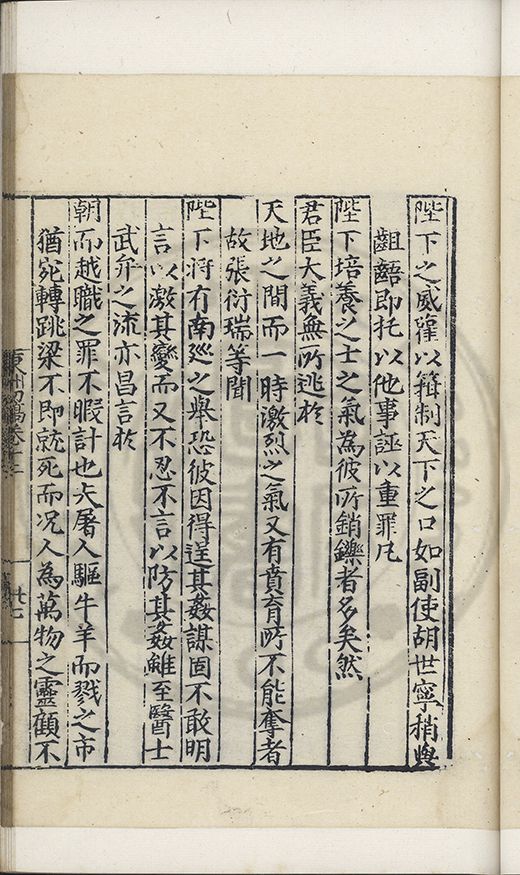 陛下之威權以箝制天下之口如副使胡世寧稍與
齟齬即托以他事誣以重罪凡
陛下培養之士之氣為彼所銷鑠者多矣然
君臣大義無所逃於
天地之間而一時激烈之氣又有賁育所不能奪者
故張衍瑞等聞
陛下將有南廵之舉恐彼因得逞其姦謀固不敢明
言以激其變而又不忍不言以防其姦雖至醫士
武弁之流亦昌言於
朝而越職之罪不暇計也夫屠人驅牛羊而戮之市
猶宛轉跳梁不即就死而况人為萬物之靈顧不
東洲初稿卷十三
廿七